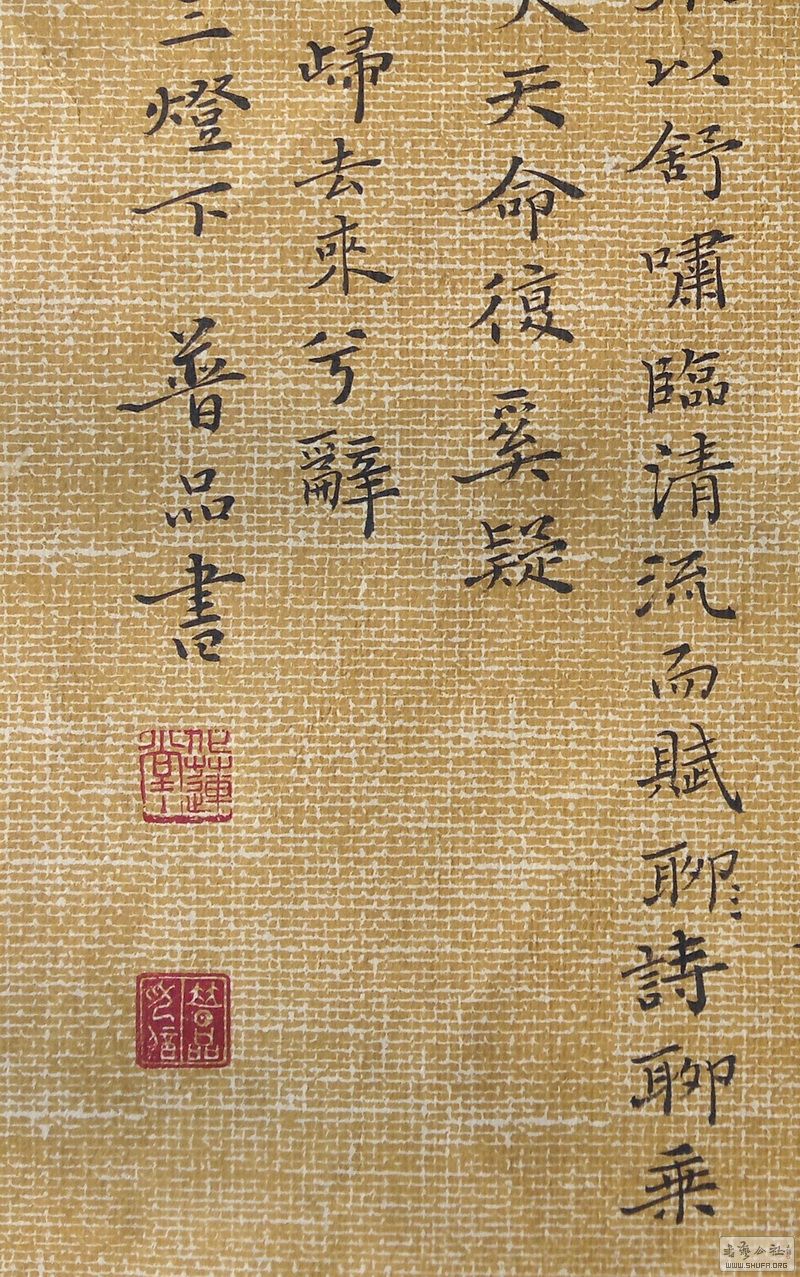 以舒嘯臨清流而賦聊詩聊乘
天命復奚疑
歸去來兮辭
燈下 普品書
普品印信
書藝公社
WWW.SHUFA.ORG